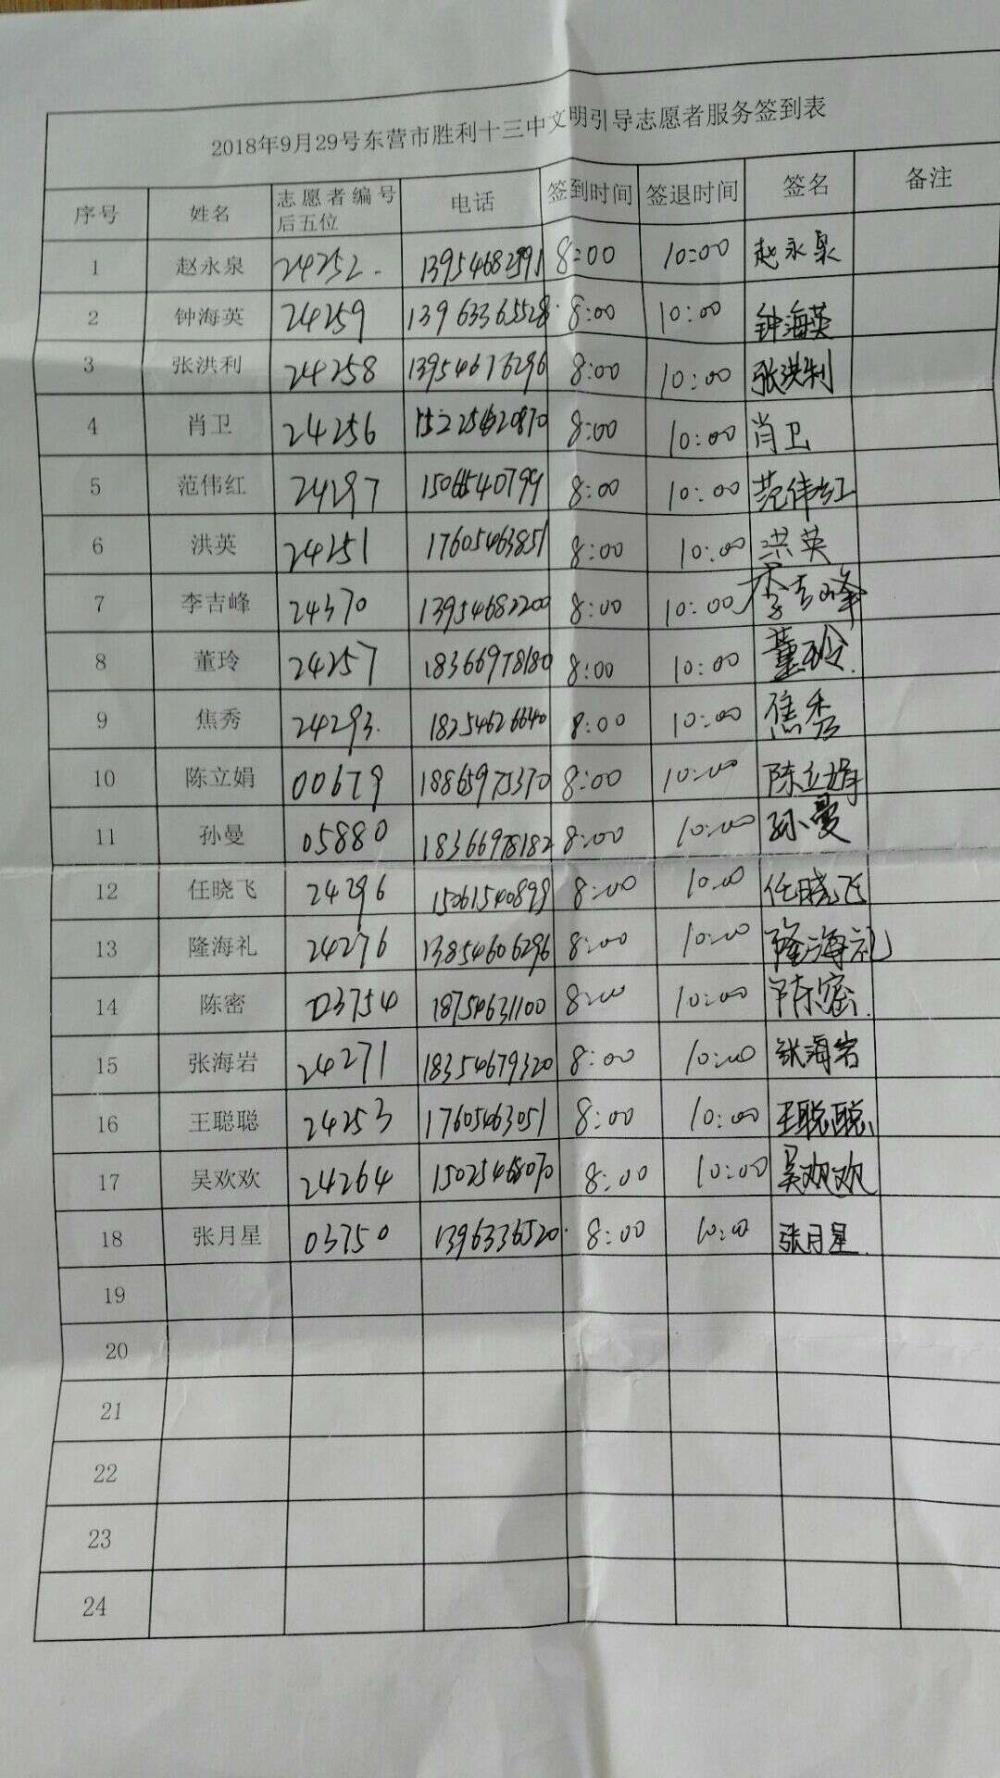 2018年9月29号东营市胜利十三中文明引导志愿者服务签到表
序号 姓名 志愿者编号后五位 电话 签到时间 签退时间 签名 备注
1 赵永泉 24252. 8:00 10:00 赵永泉
2 钟海英 24259 13963365528 8:00 10:00 钟海英
3 张洪利 24258 13954676296 8:00 10:00 张洪利
4 肖卫 24256 8:00 10:00 肖卫
5 范伟红 24297 8:00 10:00 范伟红
6 洪英 24251 17605463851 8:00 10:00 洪英
7 李吉峰 24370 13954682200 8:00 10:00 李吉峰
8 董玲 24257 18366978180 8:00 10:00 董玲.
9 焦秀 24293. 18254626640 8:00 10:00 焦秀
10 陈立娟 00679 18865975370 8:00 10:00 陈立娟
11 孙曼 05880 18366978182 8:00 10:00 孙曼
12 任晓飞 24296 15061540899 8:00 10:00 任晓飞
13 隆海礼 24276 13854606296 8:00 10:00 隆海礼
14 陈密 03754 18754631100 8:00 10:00 陈密.
15 张海岩 24271 18354679320 8:00 10:00 张海岩
16 王聪聪 24253 17605463051 8:00 10:00 王聪聪
17 吴欢欢 24264 15025468070 8:00 10:00 吴欢欢
18 张月星 03750 1396336520. 8:00 10:00 张月星.
19
20
21
22
23
24